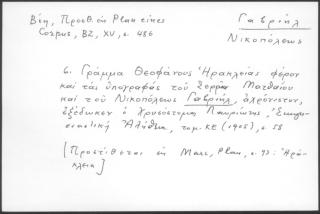 Βέη, Προσθ. εἰς Plan eines
Corpus, BZ, XV, σ. 486
Γαβριήλ
Νικοπόλεως
6. Γράμμα Θεοφάνους Ἡρακλείας φέρον
καὶ τὰς ὑπογραφὰς τοῦ Σερρῶν Ματθαίου
καὶ τοῦ Νικοπόλεως Γαβριήλ, ἀχρόνιστον,
ἐξέδωκεν ὁ Χρυσόστομος Λαυριώτης, Ἐκκλη-
σιαστικὴ Ἀλήθεια, τομ. ΚΕ (1905), σ. 58
[Προστίθεται εἰς Marc, Plan, σ. 93: Ἡρά-
κλεια]